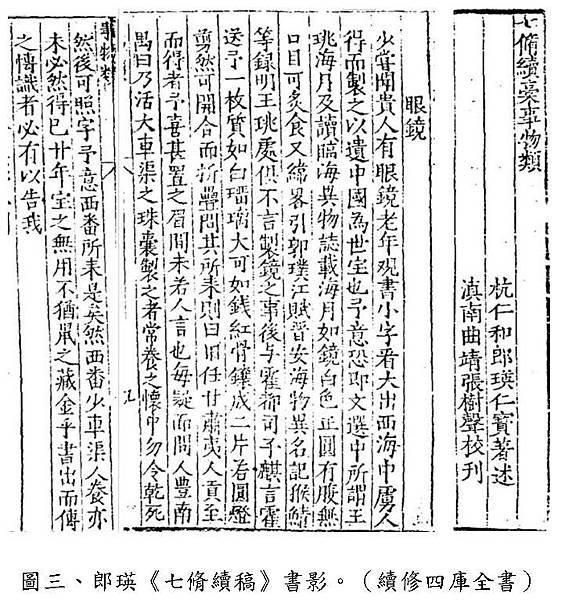 七脩續稾事物類
杭仁和郎瑛仁寳著述
滇南曲靖張樹聲校刊
眼鏡
少嘗聞貴人有眼鏡老年观書小字看大出西海中虜人
得而製之以遺中國為世宝也予意恐即文選中所謂玉
珧海月及讀臨海異物誌載海月如鏡白色正圓有腹無
口目可炙食又緯畧引郭璞江賦晉安海物異名記猴鯖
等録明玉珧處俱不言製鏡之事後与霍都司子麒言霍
送予一枚質如白璢璃大可如錢紅骨鑲成二片若圓燈
剪然可開合而折疊問其所来則曰旧任甘肅夷人貢至
而得者予喜甚置之眉間未若人言也每疑而問人豊南
禺曰乃活大車渠之珠囊製之者常養之懷中勿令乾死
然後可照字予意西番所来是矣然西番少車渠人養亦
未必然得已廿年宝之無用不猶鼠之藏金乎書出而傳
之愽識者必有以告我
圖三、郎瑛《七脩續稿》書影。（續修四庫全書）